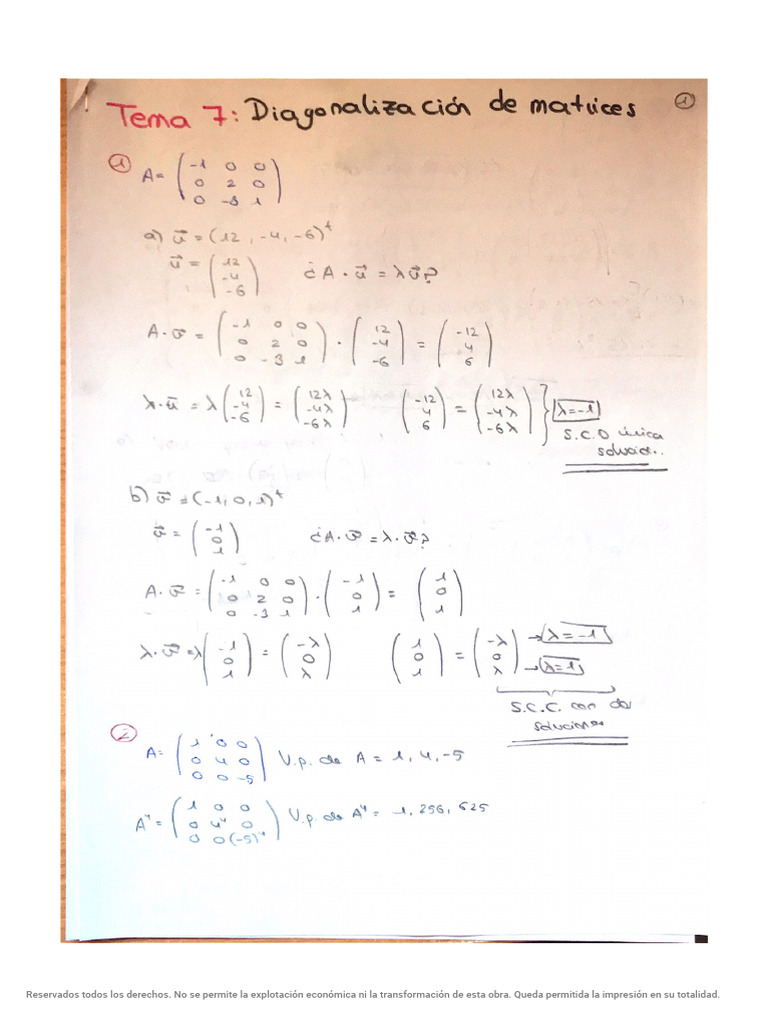 Tema 7: Diagonalización de matrices ①
① A = (-1 0 0
0 2 0
0 -3 1)
a) u⃗ = (12, -4, -6)ᵗ
u⃗ = (12
-4
-6) ¿A · u⃗ = λ v⃗?
A · v⃗ = (-1 0 0
0 2 0
0 -3 1) · (12
-4
-6) = (-12
4
6)
λ · u⃗ = λ (12
-4
-6) = (12λ
-4λ
-6λ) (-12
4
6) = (12λ
-4λ
-6λ) } λ=-1
S.C.D única
solució..
b) v⃗ = (-1, 0, 1)ᵗ
v⃗ = (-1
0
1) ¿A · v⃗ = λ · v⃗?
A · v⃗ = (-1 0 0
0 2 0
0 -3 1) · (-1
0
1) = (1
0
1)
λ · v⃗ = λ (-1
0
1) = (-λ
0
λ) (1
0
1) = (-λ
0
λ) → λ=-1
→ λ=1
S.C.C. con dos
soluciones
② A = (1 0 0
0 4 0
0 0 -5) V.p. de A = 1, 4, -5
A⁴ = (1 0 0
0 4⁴ 0
0 0 (-5)⁴) V.p. de A⁴ = 1, 256, 625
Reservados todos los derechos. No se permite la explotación económica ni la transformación de esta obra. Queda permitida la impresión en su totalidad.